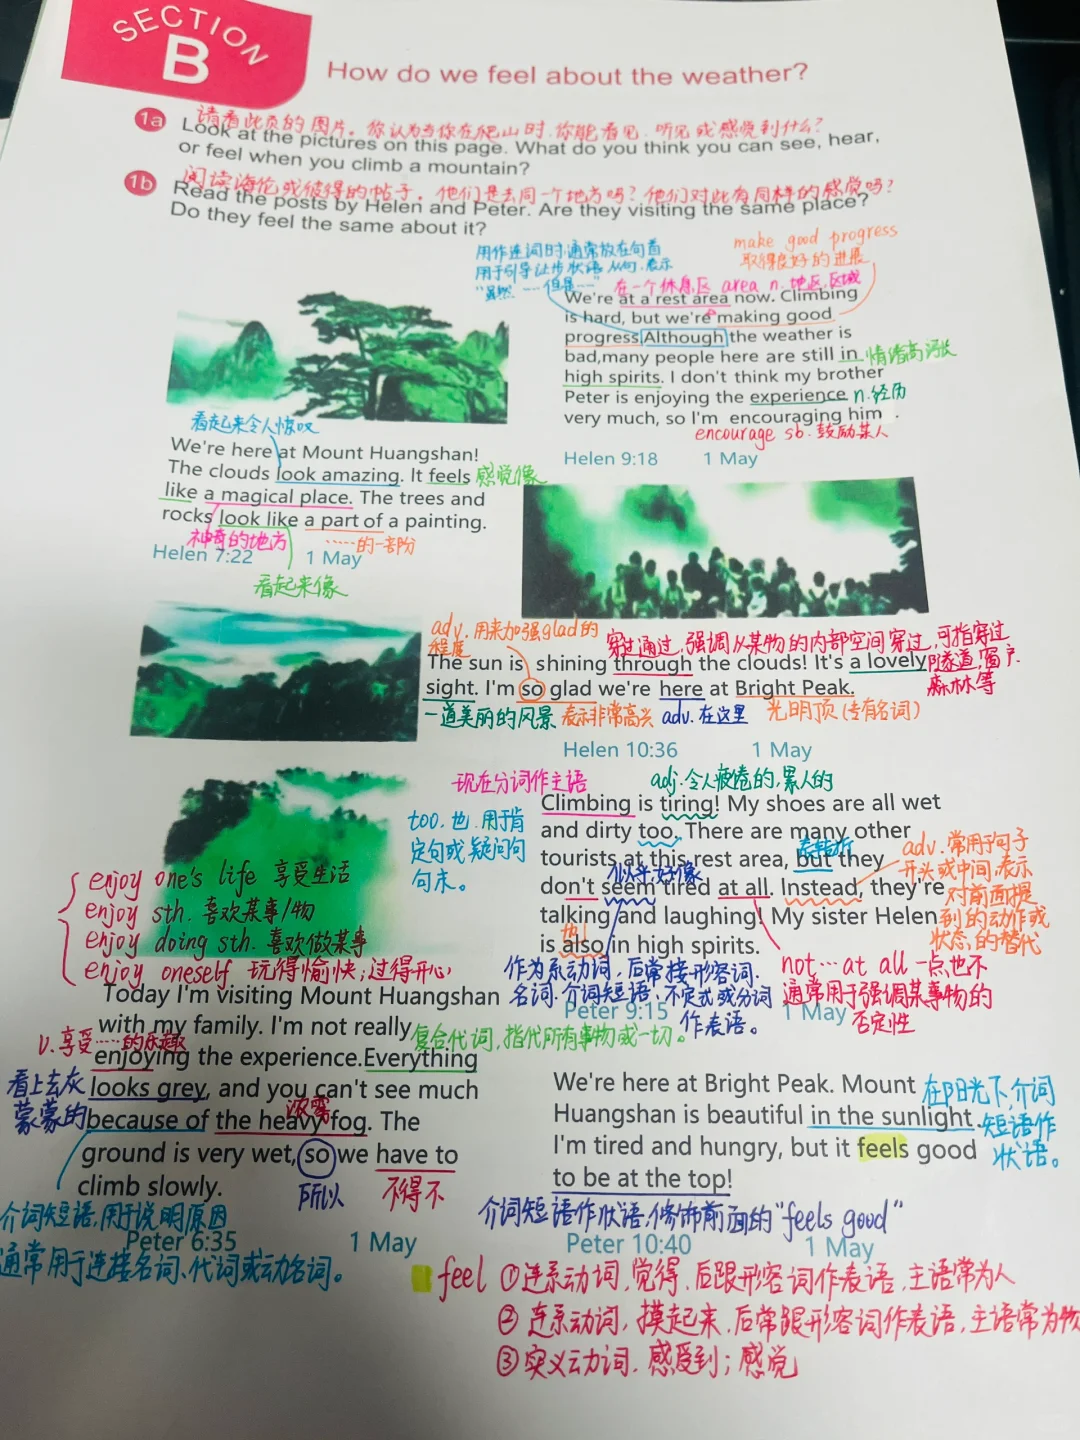 SECTION
B
How do we feel about the weather?
请看此页的图片。你认为当你在爬山时,你能看见、听见或感觉到什么?
1a Look at the pictures on this page. What do you think you can see, hear,
or feel when you climb a mountain?
阅读海伦或彼得的帖子。他们是去同一个地方吗?他们对此有同样的感觉吗?
1b Read the posts by Helen and Peter. Are they visiting the same place?
Do they feel the same about it?
用作连词时,通常放在句首
用于引导让步状语从句,表示
"虽然……但是……"
make good progress
取得良好的进展
在一个休息区 area n. 地区,区域
We're at a rest area now. Climbing
is hard, but we're making good
progress Although the weather is
bad,many people here are still in 情绪高涨
high spirits. I don't think my brother
Peter is enjoying the experience n.经历
very much, so I'm encouraging him .
encourage sb. 鼓励某人
Helen 9:18 1 May
看起来令人惊叹
We're here at Mount Huangshan!
The clouds look amazing. It feels 感觉像
like a magical place. The trees and
rocks look like a part of a painting.
神奇的地方 ……的一部份
Helen 7:22 1 May
看起来像
adv. 用来加强glad的
程度
穿过通过,强调从某物的内部空间穿过,可指穿过
隧道,窗户.
森林等
The sun is shining through the clouds! It's a lovely
sight. I'm so glad we're here at Bright Peak.
一道美丽的风景 表示非常高兴 adv. 在这里 光明顶(专有名词)
Helen 10:36 1 May
现在分词作主语 adj. 令人疲倦的,累人的
Climbing is tiring! My shoes are all wet
too. 也. 用于肯
定句或疑问句
句末。
and dirty too. There are many other
表转折
tourists at this rest area, but they
似乎好像
don't seem tired at all. Instead, they're
talking and laughing! My sister Helen
也
is also in high spirits.
adv. 常用于句子
开头或中间,表示
对前面提
到的动作或
状态的替代
作为系动词,后常接形容词.
名词.介词短语.不定式或分词
作表语。
not…at all 一点也不
通常用于强调某事物的
否定性
Peter 9:15 1 May
enjoy one's life 享受生活
enjoy sth. 喜欢某事/物
enjoy doing sth. 喜欢做某事
enjoy oneself 玩得愉快;过得开心
Today I'm visiting Mount Huangshan
with my family. I'm not really
v.享受……的乐趣
复合代词,指代所有事物或一切。
enjoying the experience.Everything
看上去灰
蒙蒙的
looks grey, and you can't see much
浓雾
because of the heavy fog. The
ground is very wet, so we have to
climb slowly.
所以 不得不
介词短语,用于说明原因
通常用于连接名词、代词或动名词。
Peter 6:35 1 May
We're here at Bright Peak. Mount
Huangshan is beautiful in the sunlight.
在阳光下,介词
短语作
状语。
I'm tired and hungry, but it feels good
to be at the top!
介词短语作状语,修饰前面的"feels good"
Peter 10:40 1 May
feel ①连系动词,觉得,后跟形容词作表语,主语常为人
②连系动词,摸起来,后常跟形容词作表语,主语常为物
③实义动词.感受到;感觉